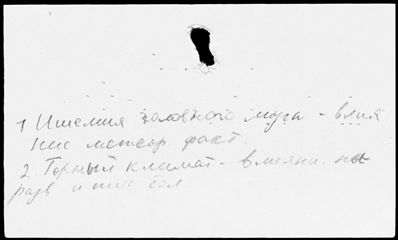 1 Ишемия головного мозга - влия
ние метеор факт.
2. Горный климат - влияни. на
разв и теч бол.